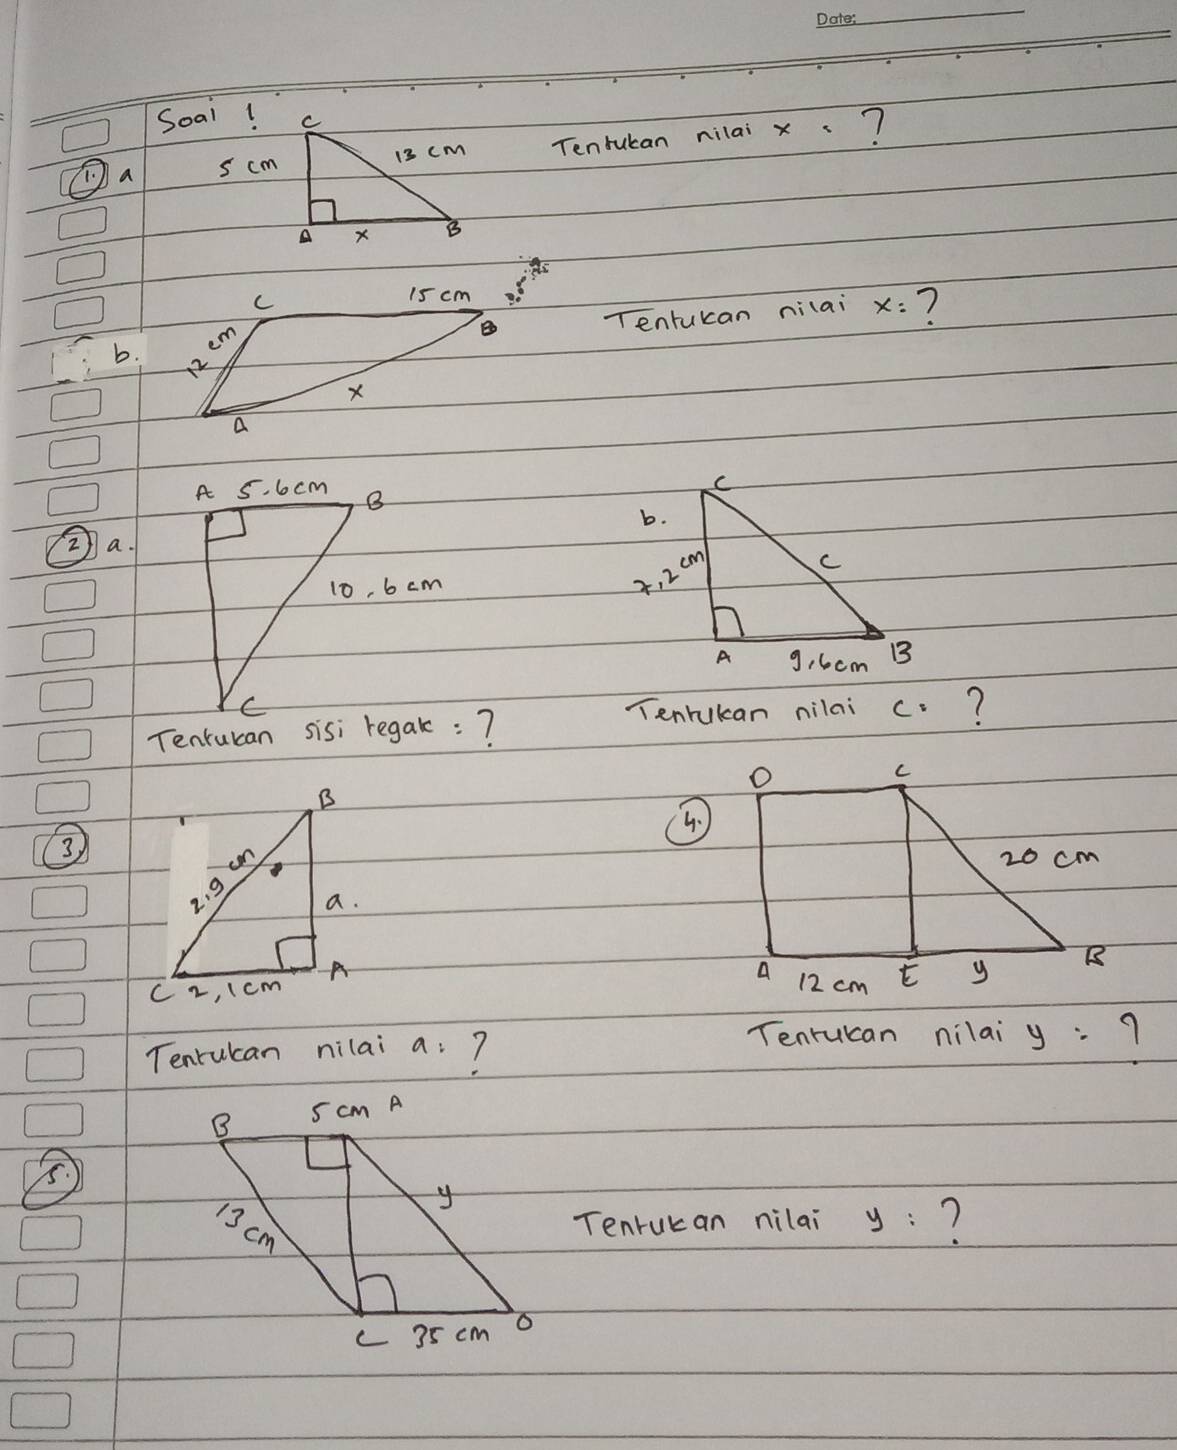 Date:
Soal !
1. a
C
5 cm
13 cm
Tentukan nilai x : ?
A
x
B
b.
C
15 cm
12 cm
B
Tentukan nilai x : ?
x
A
2. a.
A 5,6 cm
B
10,6 cm
C
Tentukan sisi tegak : ?
b.
C
7,2 cm
C
A
9,6 cm
B
Tentukan nilai c : ?
3.
B
2,9 cm
a.
C 2,1 cm
A
Tentukan nilai a : ?
4.
D
C
20 cm
A 12 cm E y B
Tentukan nilai y : ?
5.
B
5 cm A
13 cm
y
Tentukan nilai y : ?
C 35 cm D